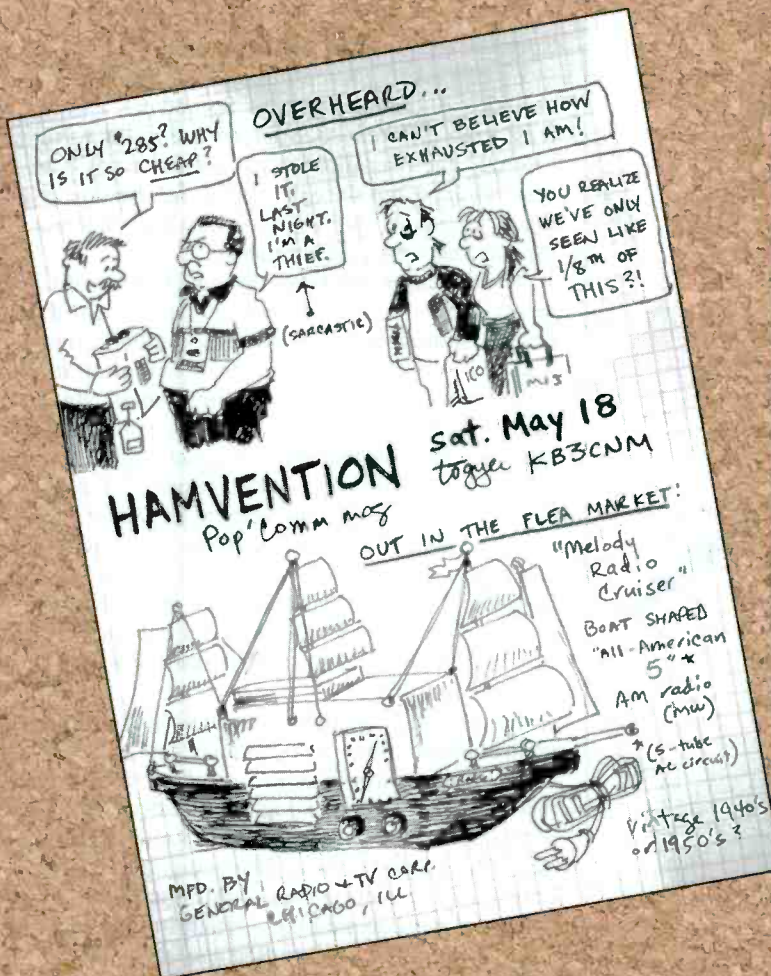 OVERHEARD...
ONLY $285? WHY
IS IT SO CHEAP?
I STOLE
IT.
LAST
NIGHT.
I'M A
THIEF.
(SARCASTIC)
I CAN'T BELIEVE HOW
EXHAUSTED I AM!
YOU REALIZE
WE'VE ONLY
SEEN LIKE
1/8TH OF
THIS?!
ICO
MFJ
HAMVENTION
sat. May 18
KB3CNM
Pop'Comm mag
OUT IN THE FLEA MARKET!
"Melody
Radio
Cruiser"
BOAT SHAPED
"All-American
5" *
AM radio
(MW)
* (5-tube
AC circuit)
Vintage 1940's
or 1950's?
MFD. BY
GENERAL RADIO + TV CORP.
CHICAGO, ILL